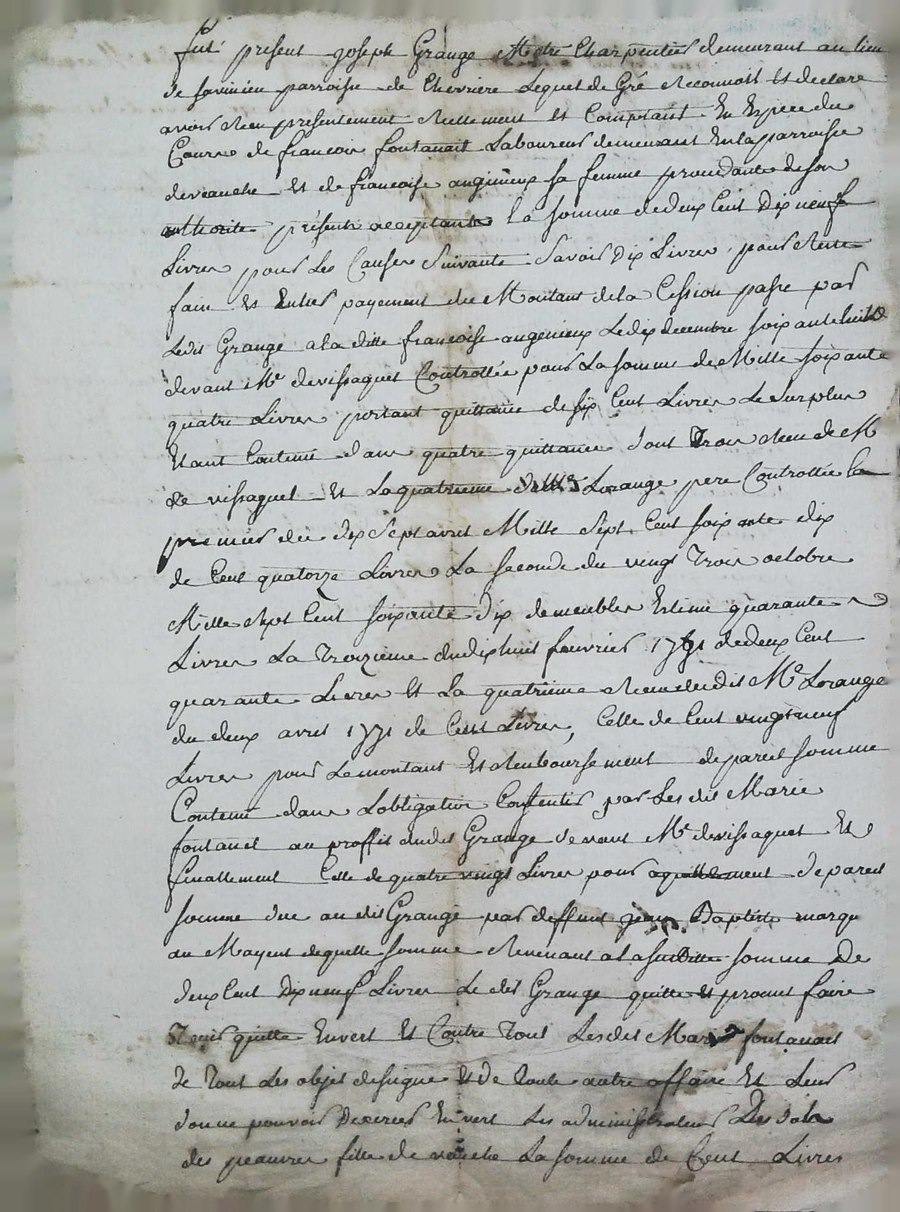 fut present joseph Grange Metre Charpentier demeurant au lieu
de savinien parroisse de Chevriere Lequel de Gré Reconnoit Et declare
avoir Receu presentement Reellement Et Comptant En Espece du
Cours de francois fontanait Laboureur demeurant En la parroisse
de veauche Et de francoise angenieux sa femme procedante de son
authorite presents acceptants la somme de deux Cent Dix neuf
Livres pour Les Causes Suivante Savoir Dix Livres pour Reste
fain Et Entier payement du Montant de la Cession passe par
Ledit Grange a la ditte francoise angenieux Le dix decembre soixante huit
devant Mr devissaguet Controllée pour La somme de Mille soixante
quatre Livres portant quittance de six Cent Livres Le surplus
Etant Contenu dans quatre quittances dont Trois Receu de M
de vissaguet Et La quatrieme Lorange pere Controllée la
premier du dix Sept avril Mille Sept Cent soixante dix
de Cent quatorze Livres La seconde du vingt Trois octobre
Mille Sept Cent soixante dix de meubles Estimé quarante
Livres La Troizieme du dix huit feuvrier 1771 de deux Cent
quarante Livres Et La quatrieme Receu dudit Mr Lorange
du deux avril 1771 de Cent Livres, Celle de Cent vingt neuf
Livres pour Le montant Et Remboursement de pareil somme
Contenu dans Lobligation Consentie par Les dit Marié
fontanet au proffit dudit Grange devant Mr devissaguet Et
finallement Celle de quatre vingt Livres pour de pareil
somme due au dit Grange par deffunt jean Baptiste marqu
au Moyent de quelle somme Revenant a la susditte somme De
deux Cent Dix neuf Livres Le dit Grange quitte Et promet faire
Tenir quitte Envert Et Contre Tous Les dit Mariés fontanait
de Tout Les objet desigue Et de Toute autre affaire Et Leur
donne pouvoir Envert Les administrateur
des peauvres fille de veauche La somme de Cent Livres